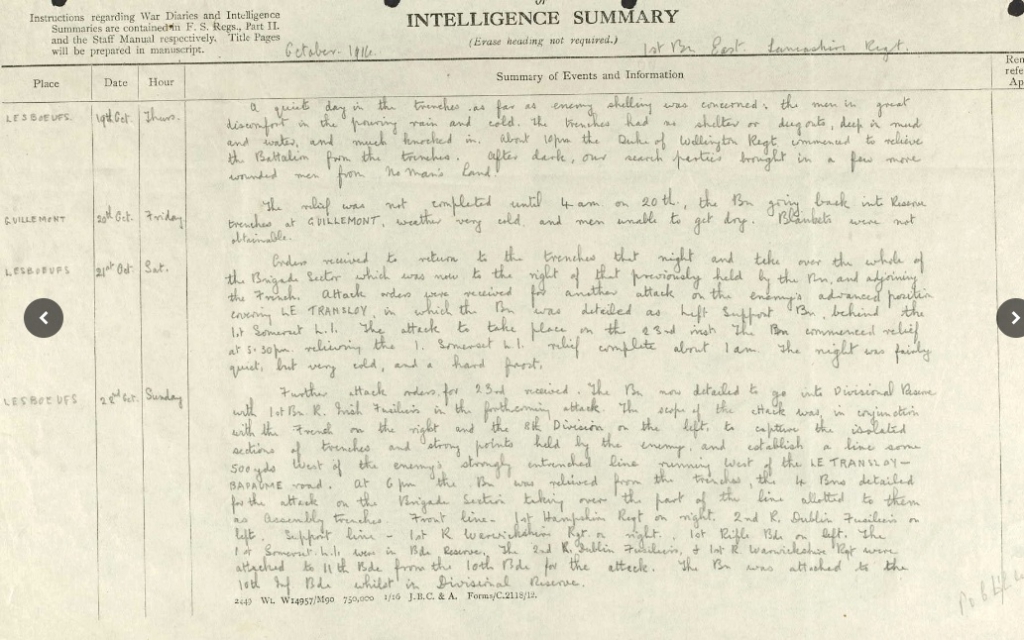 or
Instructions regarding War Diaries and Intelligence
Summaries are contained in F. S. Regs., Part II.
and the Staff Manual respectively. Title Pages
will be prepared in manuscript.
INTELLIGENCE SUMMARY
(Erase heading not required.)
October. 1916.
1st Bn East Lancashire Regt.
Place
Date
Hour
Summary of Events and Information
Rem
refe
Ap
LESBOEUFS
19th Oct.
Thurs.
A quiet day in the trenches as far as enemy shelling was concerned: the men in great
discomfort in the pouring rain and cold. The trenches had no shelter or dug outs, deep in mud
and water, and much knocked in. About 10pm the Duke of Wellington Regt commenced to relieve
the Battalion from the trenches. After dark, our search parties brought in a few more
wounded men from No Man's Land.
GUILLEMONT
20th Oct.
Friday
The relief was not completed until 4 am on 20th, the Bn going back into Reserve
trenches at GUILLEMONT, weather very cold and men unable to get dry. Blankets were not
obtainable.
LESBOEUFS
21st Oct
Sat.
Orders received to return to the trenches that night and take over the whole of
the Brigade Sector which was now to the right of that previously held by the Bn, and adjoining
the French. Attack orders were received for another attack on the enemy's advanced position
covering LE TRANSLOY, in which the Bn was detailed as Left Support Bn, behind the
1st Somerset L.I. The attack to take place on the 23rd inst. The Bn commenced relief
at 5.30pm relieving the 1. Somerset L.I. relief complete about 1 am. The night was fairly
quiet, but very cold, and a hard frost.
LESBOEUFS
22nd Oct.
Sunday
Further attack orders for 23rd received. The Bn now detailed to go into Divisional Reserve
with 1st Bn R. Irish Fusiliers in the forthcoming attack. The scope of the attack was, in conjunction
with the French on the right and the 8th Division on the left, to capture the isolated
sections of trenches and strong points held by the enemy, and establish a line some
500 yds West of the enemy's strongly entrenched line running West of the LE TRANSLOY -
BAPAUME road. At 6 pm the Bn was relieved from the trenches, the 4 Bns detailed
for the attack on the Brigade Section taking over the part of the line allotted to them
as Assembly trenches. Front line - 1st Hampshire Regt on right, 2nd R. Dublin Fusiliers on
left. Support line - 1st R Warwickshire Regt on right, 1st Rifle Bde on left. The
1st Somerset L.I. were in Bde Reserve. The 2nd R. Dublin Fusiliers, & 1st R. Warwickshire Rgt were
attached to 11th Bde from the 10th Bde for the attack. The Bn was attached to the
10th Inf Bde whilst in Divisional Reserve.
2449 Wt. W14957/M90 750,000 1/16 J.B.C. & A. Forms/C.2118/12.